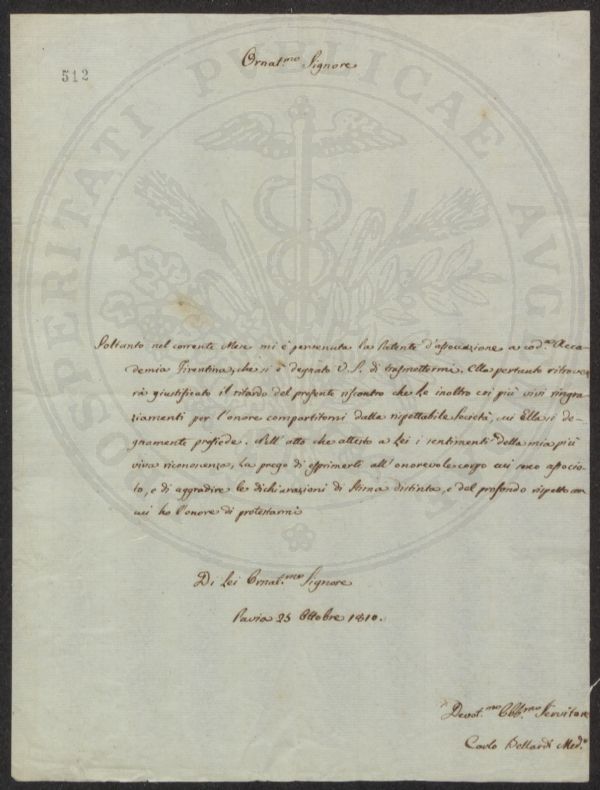 512
Ornat.mo Signore
Soltanto nel corrente Mese mi è pervenuta la Patente d'associazione a cod.a Acca-
demia Tirentina, che si è degnato V. S. di trasmettermi. Ella pertanto ritrove-
rà giustificato il ritardo del presente riscontro che Le inoltro coi più vivi ringra-
ziamenti per l'onore compartitomi dalla rispettabile Società, cui Ella si de-
gnamente presiede. Nell'atto che attesto a Lei i sentimenti della mia più
viva riconoscenza, La prego di esprimerli all'onorevole corpo cui sono associa-
to, e di aggradire le dichiarazioni di stima distinta, e del profondo rispetto con
cui ho l'onore di protestarmi
Di Lei Ornat.mo Signore
Pavia 25 Ottobre 1810.
Devot.mo Obb.mo Servitore
Carlo Bellardi Med.o
PROSPERITATI PVBLICAE AVGENDAE